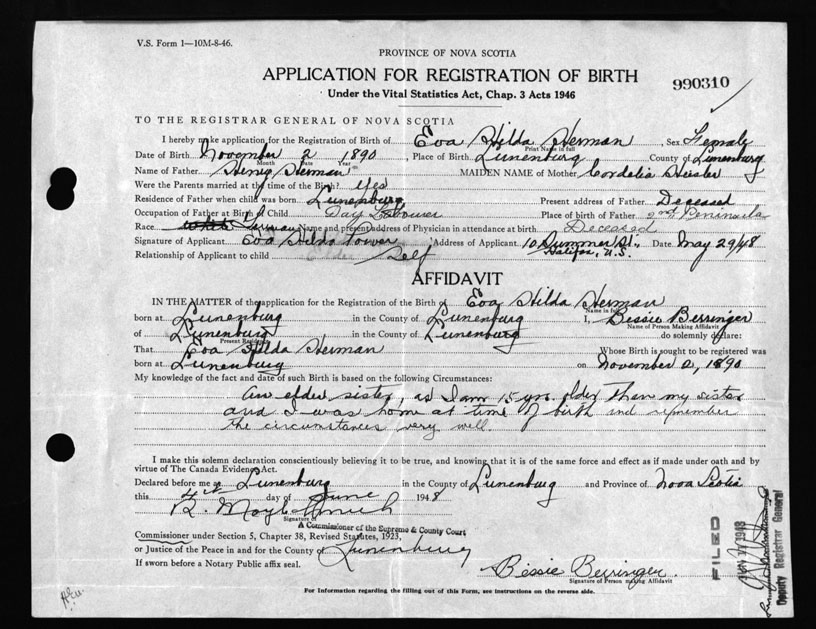 V.S. Form 1—10M-8-46.
PROVINCE OF NOVA SCOTIA
APPLICATION FOR REGISTRATION OF BIRTH
990310
Under the Vital Statistics Act, Chap. 3 Acts 1946
TO THE REGISTRAR GENERAL OF NOVA SCOTIA
I hereby make application for the Registration of Birth of Eva Hilda Herman, Sex Female
Print Name in full
Date of Birth November 2 1890, Place of Birth Lunenburg County of Lunenburg
Month Date Year
Name of Father Henry Herman MAIDEN NAME of Mother Cordelia Heisler
Were the Parents married at the time of the Birth? Yes
Residence of Father when child was born Lunenburg Present address of Father Deceased
Occupation of Father at Birth of Child Day Labourer Place of birth of Father 2nd Peninsula
Race White German Name and present address of Physician in attendance at birth Deceased
Signature of Applicant Eva Hilda Tower Address of Applicant 10 Summer St., Halifax, N.S. Date May 29/48
Relationship of Applicant to child Self
AFFIDAVIT
IN THE MATTER of the application for the Registration of the Birth of Eva Hilda Herman
Name in full
born at Lunenburg in the County of Lunenburg I, Bessie Berringer
Name of Person Making Affidavit
of Lunenburg in the County of Lunenburg do solemnly declare:
Present Residence
That Eva Hilda Herman Whose Birth is sought to be registered was
born at Lunenburg on November 2, 1890
My knowledge of the fact and date of such Birth is based on the following Circumstances:
An elder sister, as I am 15 yrs. older than my sister
and I was home at time of birth and remember
the circumstances very well.
I make this solemn declaration conscientiously believing it to be true, and knowing that it is of the same force and effect as if made under oath and by
virtue of The Canada Evidence Act.
Declared before me at Lunenburg in the County of Lunenburg and Province of Nova Scotia
this 4th day of June 1948
Signature of
A Commissioner of the Supreme & County Court
Commissioner under Section 5, Chapter 38, Revised Statutes, 1923,
or Justice of the Peace in and for the County of Lunenburg
If sworn before a Notary Public affix seal.
Bessie Berringer.
Signature of Person making Affidavit
For Information regarding the filling out of this Form, see instructions on the reverse side.
FILED
1948
Deputy Registrar General